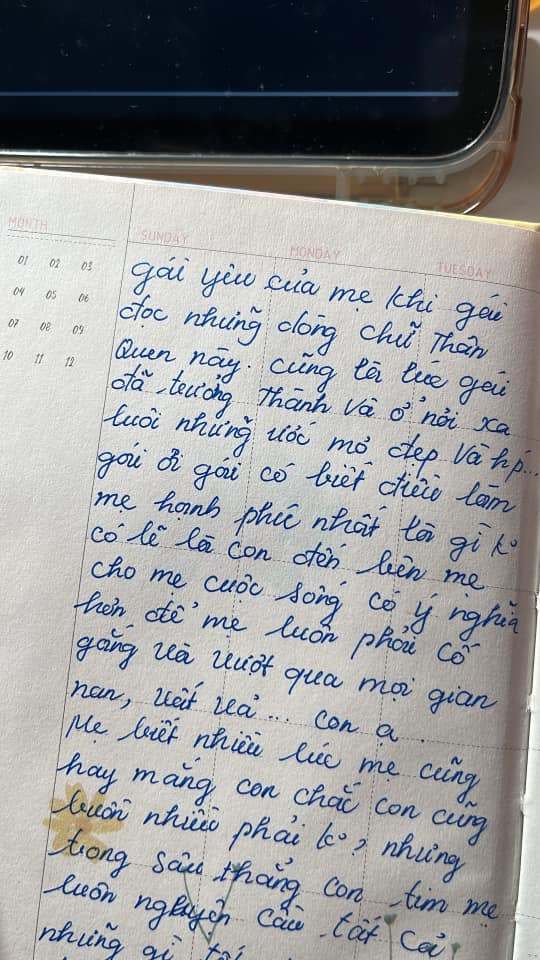 MONTH
SUNDAY
MONDAY
TUESDAY
01 02 03
04 05 06
07 08 09
10 11 12
gái yêu của mẹ khi gái
đọc những dòng chữ Thân
Quen này. cũng là lúc gái
đã trưởng Thành và ở nơi xa
luôi những ước mơ đẹp và hp...
gái ơi gái có biết điều làm
mẹ hạnh phúc nhất là gì ko
có lẽ là con đến bên mẹ
cho mẹ cuộc sống có ý nghĩa
hơn để mẹ luôn phải cố
gắng và vượt qua mọi gian
nan, vất vả... con ạ.
Mẹ biết nhiều lúc mẹ cũng
hay mắng con chắc con cũng
buồn nhiều phải ko, nhưng
trong sâu thẳng con tim mẹ
luôn nguyện cầu tất cả
những gì